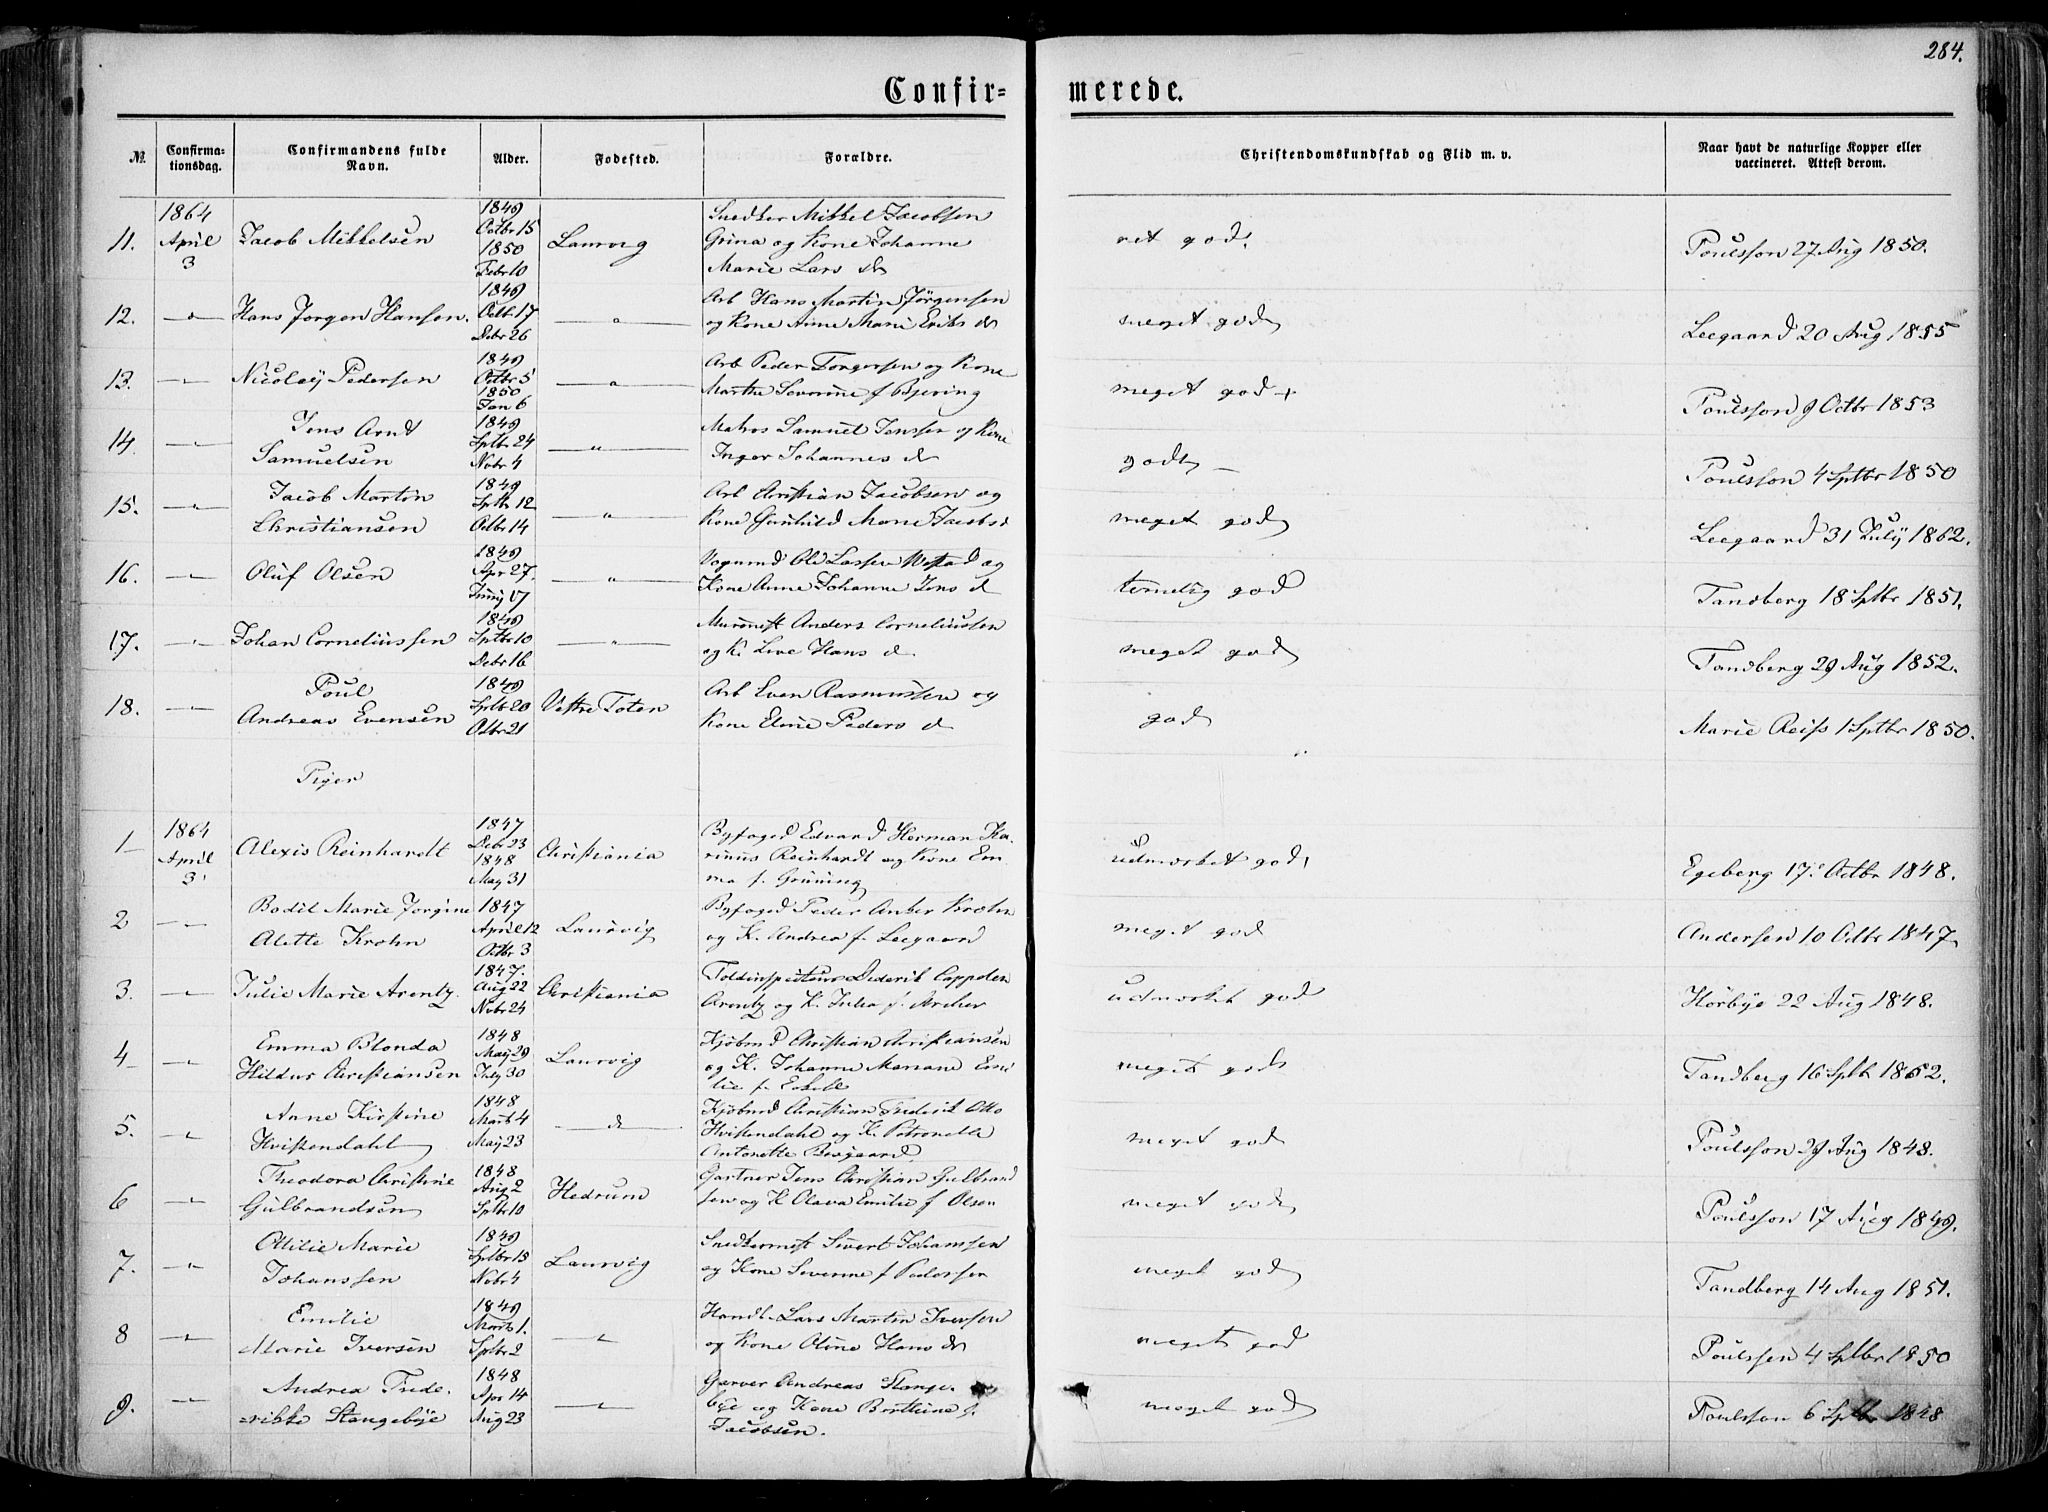 284.
Confir-merede.
№ Confirma-tionsdag. Confirmandens fulde Navn. Alder. Fodested. Forældre. Christendomskundskab og Flid m. v. Naar havt de naturlige Kopper eller vaccineret. Attest derom.
1864 1849 Snedker Mikkel Jacobsen
11. April 3 Jacob Mikkelsen Octbr 15 1850 Febr 10 Laurvig Grina og Kone Johanne Marie Lars dr ret god. Poulsson 27 Aug 1850.
12. " Hans Jørgen Hansen. 1849 Octbr 17 Debr 26 " Arb Hans Martin Jørgensen
og Kone Anne Marie Eriks dr meget god Leegaard 20 Aug 1855
13. " Nicolay Pedersen 1849 Octbr 5 1850 Jan 6 " Arb Peder Torgersen og Kone
Marthe Severine f Bjering meget god + Poulsson 9 Octbr 1853
14. " Jens Arnt Samuelsen 1849 Sptbr 24 Nobr 4 " Matros Samuel Jenssen og Kone
Inger Johannes d godt Poulsson 4 Sptbr 1850
15. " Jacob Martin Christiansen 1849 Sptbr 12 Octbr 14 " Arb Christian Jacobsen og
Kone Gunhild Marie Jacobs d meget god Leegaard 31 July 1862.
16. " Oluf Olsen 1849 Apr 27. Juny 17 " Vognmd Ole Larssen og
Kone Anne Johanne Jens d temelig god Tandberg 18 Sptbr 1851.
17. " Johan Corneliussen 1849 Sptbr 10 Debr 16 " Murmest Anders Corneliussen
og K. Live Hans d. meget god Tandberg 29 Aug 1852.
18. " Poul Andreas Evensen 1849 Sptbr 20 Octbr 21 Vestre Toten Arb Even Rasmussen og
Kone Eline Peders d god Marie Reiss 1 Sptbr 1850.
Piger
1 1864 April 3 Alexis Reinhardt 1847 Debr 23 1848 May 31 Christiania Byfoged Edvard Herman Ka-
rinus Reinhardt og Kone Em-
ma f. Grüning udmærket god, Egeberg 17. Octbr 1848.
2 " Bodil Marie Jorgine Alette Krohn 1847 April 12 Octbr 3 Laurvig Byfoged Peder Anker Krohn
og K. Andrea f. Leegaard meget god Andersen 10 Octbr 1847
3. " Julie Marie Arentz. 1847. Aug 22 Nobr 24 Christiania Toldinspecteur Diderik Cappelen
Arentz og K. Julia f. Archer udmærket god Hörbye 22 Aug 1848.
4 " Emma Blonda Hildur Christiansen 1848 May 29 July 30 Laurvig Kjöbmd Christian Christiansen
og K. Johanne Mariane Emi
lie f. meget god Tandberg 16 Sptb 1862.
5. " Anne Kirstine Hvistendahl 1848 Marts 4 May 23 d Kjöbmd Christian Frederik Otto
Hvistendahl og K. Petronelle
Antonette meget god Poulsson 29 Aug 1848.
6 " Theodora Christine Gulbrandsen 1848 Aug 2 Sptbr 10 Hedrum Gartner Jens Christian Gulbrand
sen og K Olava Emilie f Olsen meget god Poulsson 17 Aug 1849.
7. " Ottilie Marie Johanssen 1849 Sptbr 15 Nobr 4 Laurvig Snedkermest Sivert Johanssen
og Kone Severine f Pedersen meget god Tandberg 14 Aug 1851.
8 " Emilie Marie Iversen 1849 Marts 1. Sptbr 2 " Handl. Lars Martin Iversen
og Kone Oline Hans dr meget god Poulsson 4 Sptbr 1850
9. " Andrea Frede-rikke Stangebye 1848 Apr 14 Aug 23 " Garver Andreas Stange-
bye og Kone Berthine f.
Jacobsen. meget god Poulsson 6 Sptbr 1848